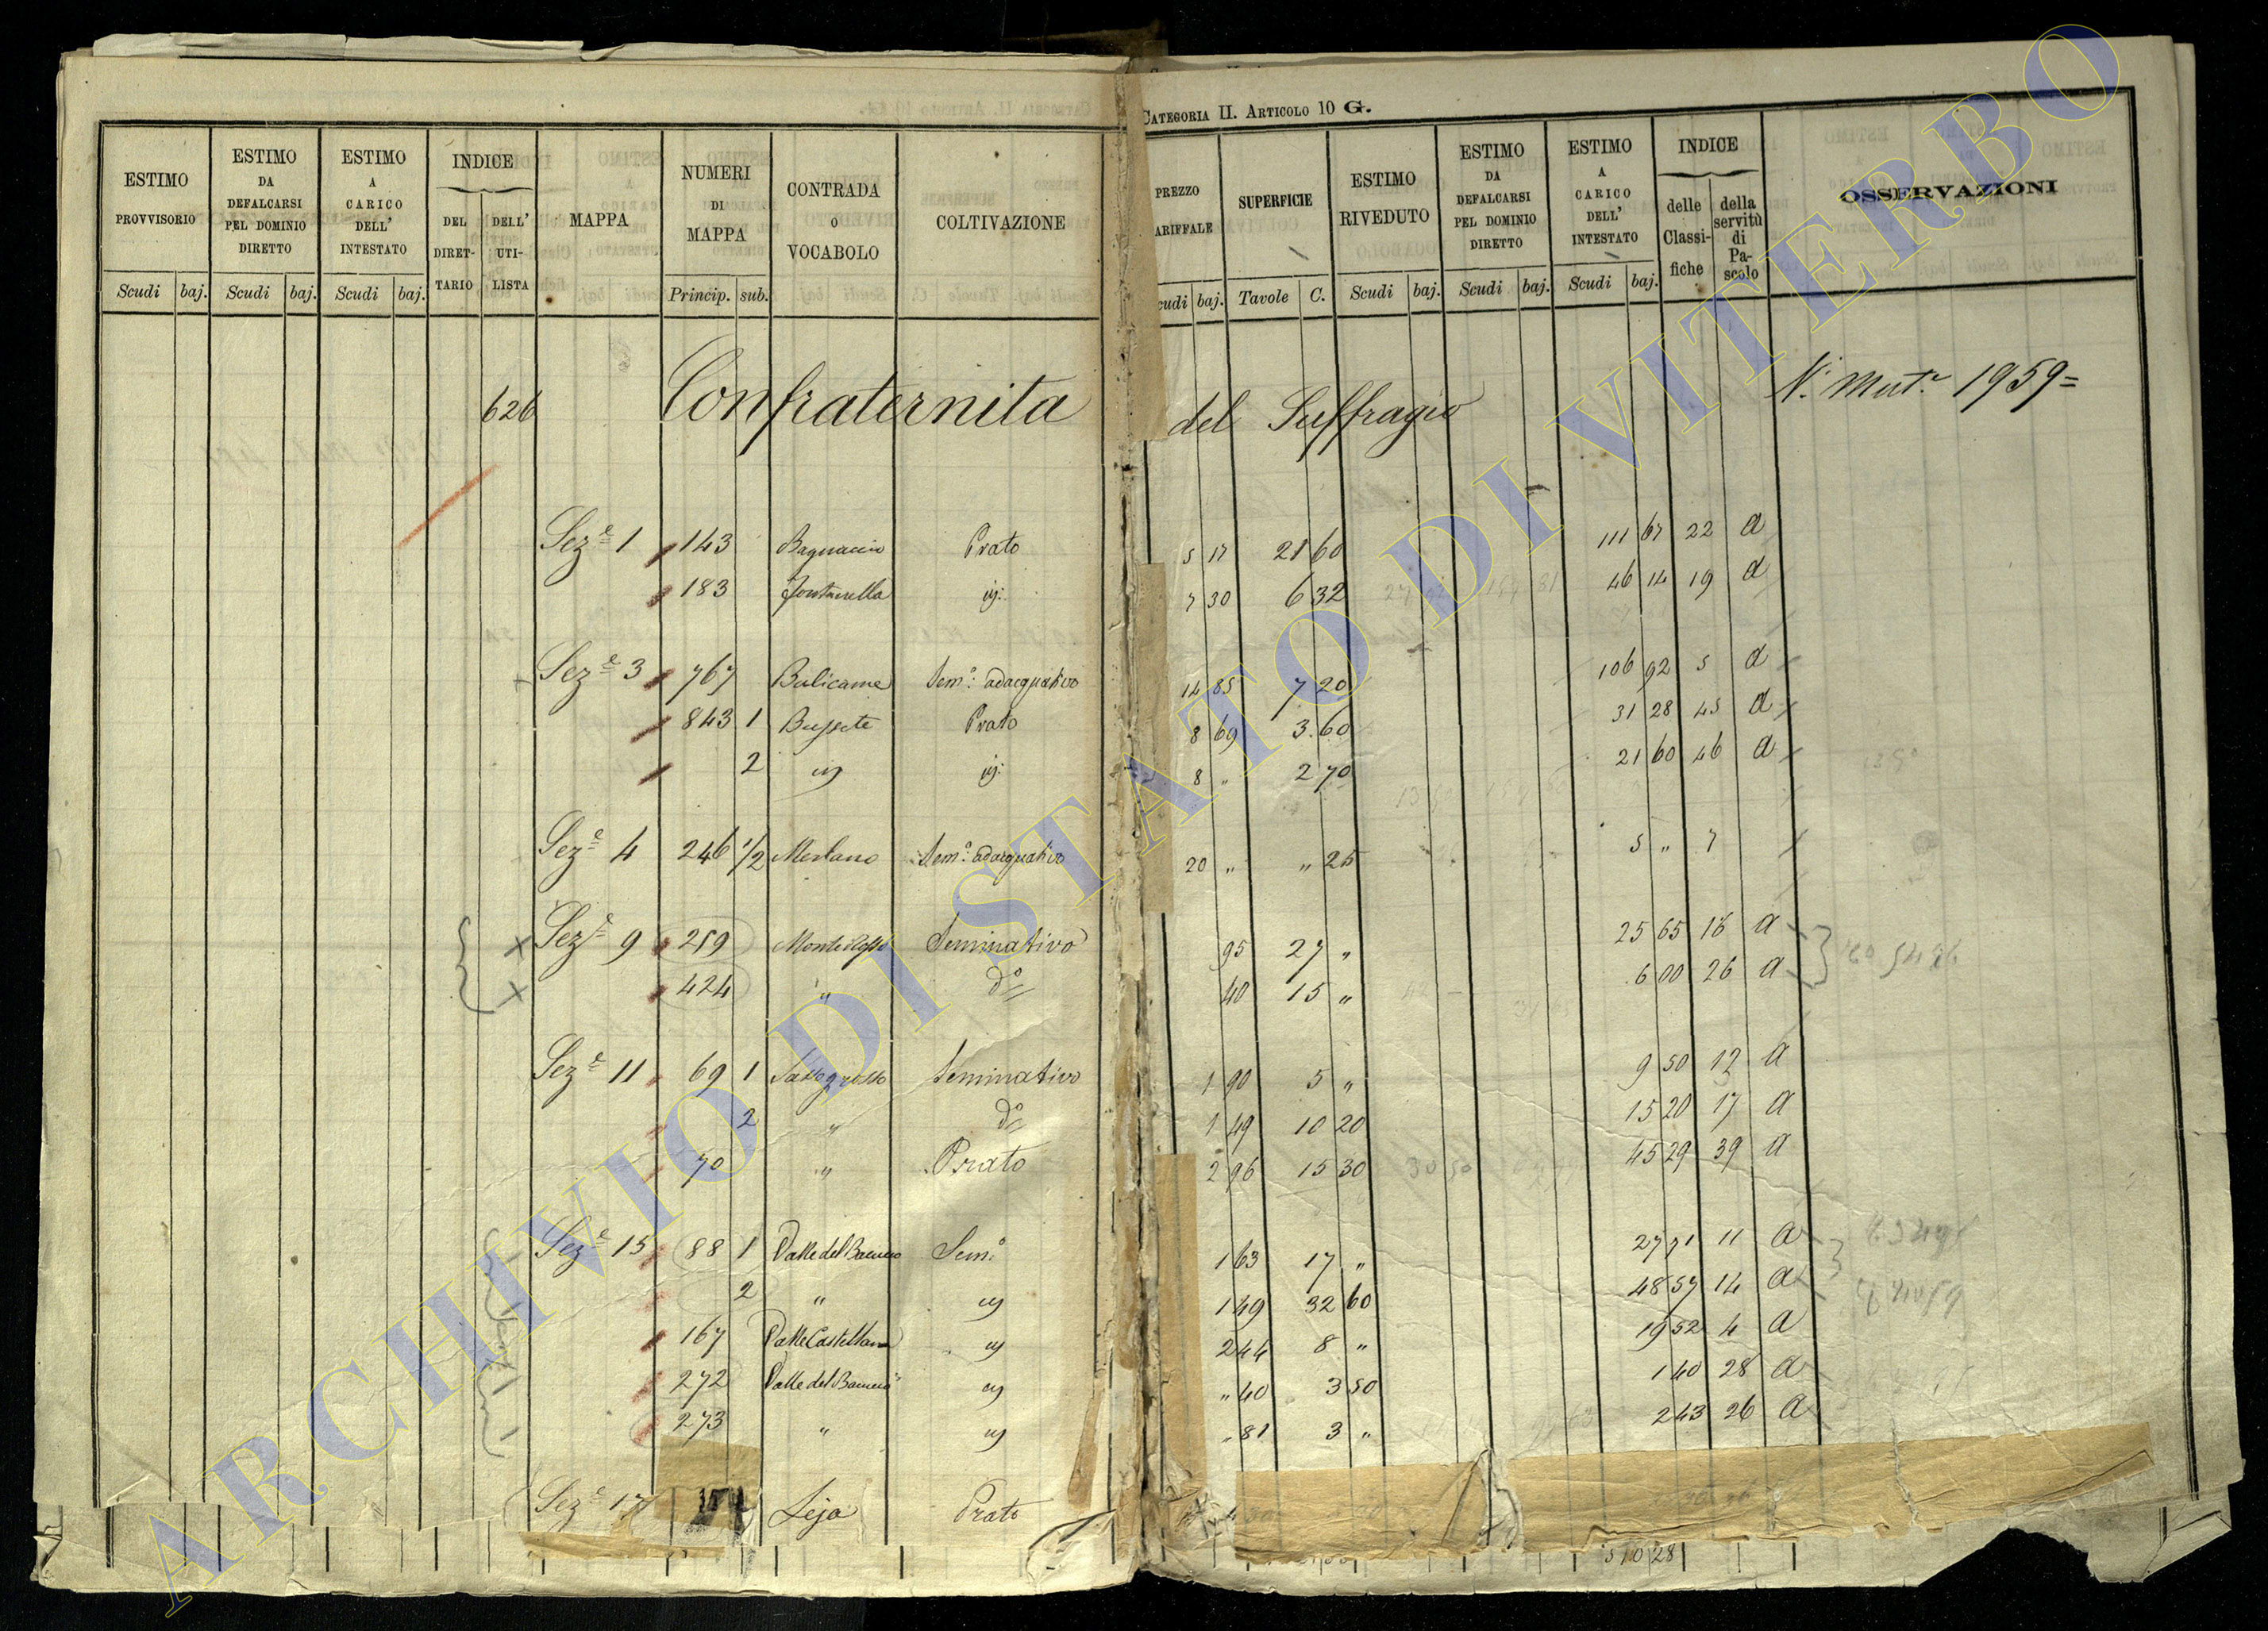 CATEGORIA II. ARTICOLO 10 G.
ESTIMO PROVVISORIO Scudi baj.
ESTIMO DA DEFALCARSI PEL DOMINIO DIRETTO Scudi baj.
ESTIMO A CARICO DELL' INTESTATO Scudi baj.
INDICE DEL DIRETTARIO DELL' UTILISTA
MAPPA
NUMERI DI MAPPA Princip. sub.
CONTRADA O VOCABOLO
COLTIVAZIONE
PREZZO ARIFFALE cudi baj.
SUPERFICIE Tavole C.
ESTIMO RIVEDUTO Scudi baj.
ESTIMO DA DEFALCARSI PEL DOMINIO DIRETTO Scudi baj.
ESTIMO A CARICO DELL' INTESTATO Scudi baj.
INDICE delle Classifiche della servitù di Pascolo
OSSERVAZIONI
626 Confraternita del Suffragio N. Mut.e 1959=
Sez.e 1 143 Bagnaccio Prato 5 17 21 60 111 67 22 a
183 Fontanella id: 7 30 6 32 46 14 19 a
Sez.e 3 767 Bulicame Sem.o adacquativo 14 85 7 20 106 92 5 a
843 1 Bussete Prato 8 69 3.60 31 28 45 a
2 id id: 8 " 2 70 21 60 46 a
Sez.e 4 246 1/2 Merlano Sem.o adacquativo 20 " " 25 5 " 7
Sez.e 9 259 Monterosso Seminativo 95 27 " 25 65 16 a
424 " d.o 40 15 " 6 00 26 a
Sez.e 11 69 1 Sassogrosso Seminativo 1 90 5 " 9 50 12 a
2 " d.o 1 49 10 20 15 20 17 a
70 " Prato 2 96 15 30 45 29 39 a
Sez.e 15 88 1 Valle del Sem.o 1 63 17 " 27 71 11 a
2 " id 1 49 32 60 48 57 14 a
167 Valle Castellana id 2 44 8 " 19 52 4 a
272 Valle del id " 40 3 50 1 40 28 a
273 " id " 81 3 " 2 43 26 a
Sez.e 17 Leja Prato
510 28
ARCHIVIO DI STATO DI VITERBO